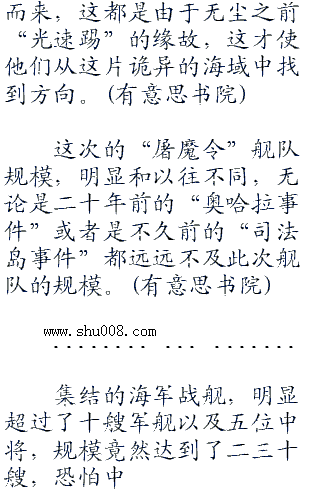 而来，这都是由于无尘之前
“光速踢”的缘故，这才使
他们从这片诡异的海域中找
到方向。(有意思书院)
这次的“屠魔令”舰队
规模，明显和以往不同，无
论是二十年前的“奥哈拉事
件”或者是不久前的“司法
岛事件”都远远不及此次舰
队的规模。(有意思书院)
www.shu008.com
........ ... .......
集结的海军战舰，明显
超过了十艘军舰以及五位中
将，规模竟然达到了二三十
艘，恐怕中